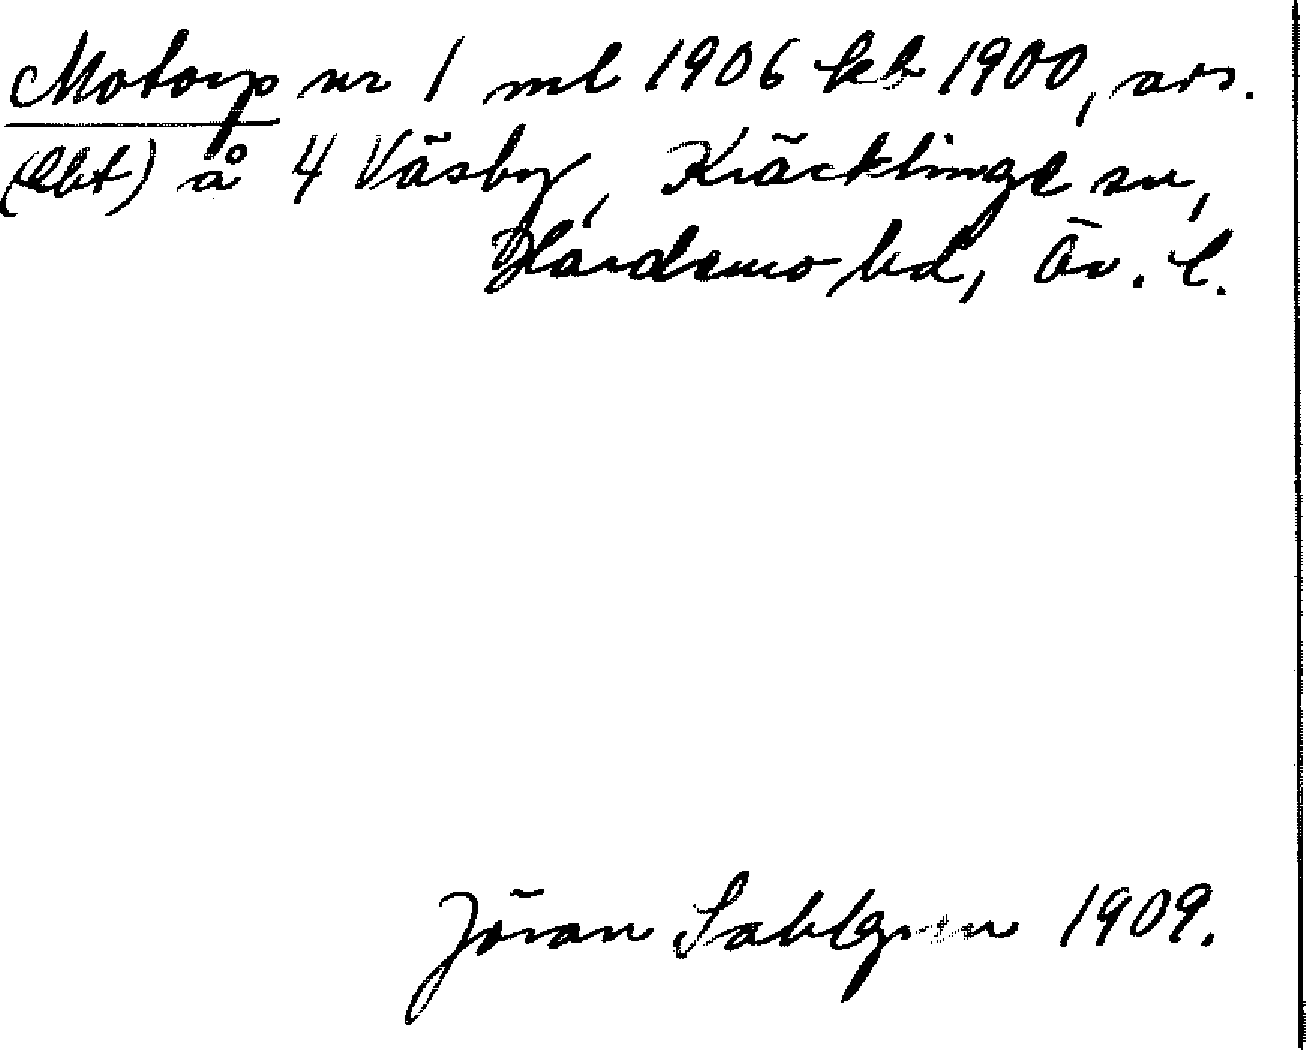 Motorp nr 1 ml 1906 kb 1900, avs.
(lht) å 4 Väsby, Kräcklinge sn,
Hardemo hd, Ör. l.
Jöran Sahlgren 1909.